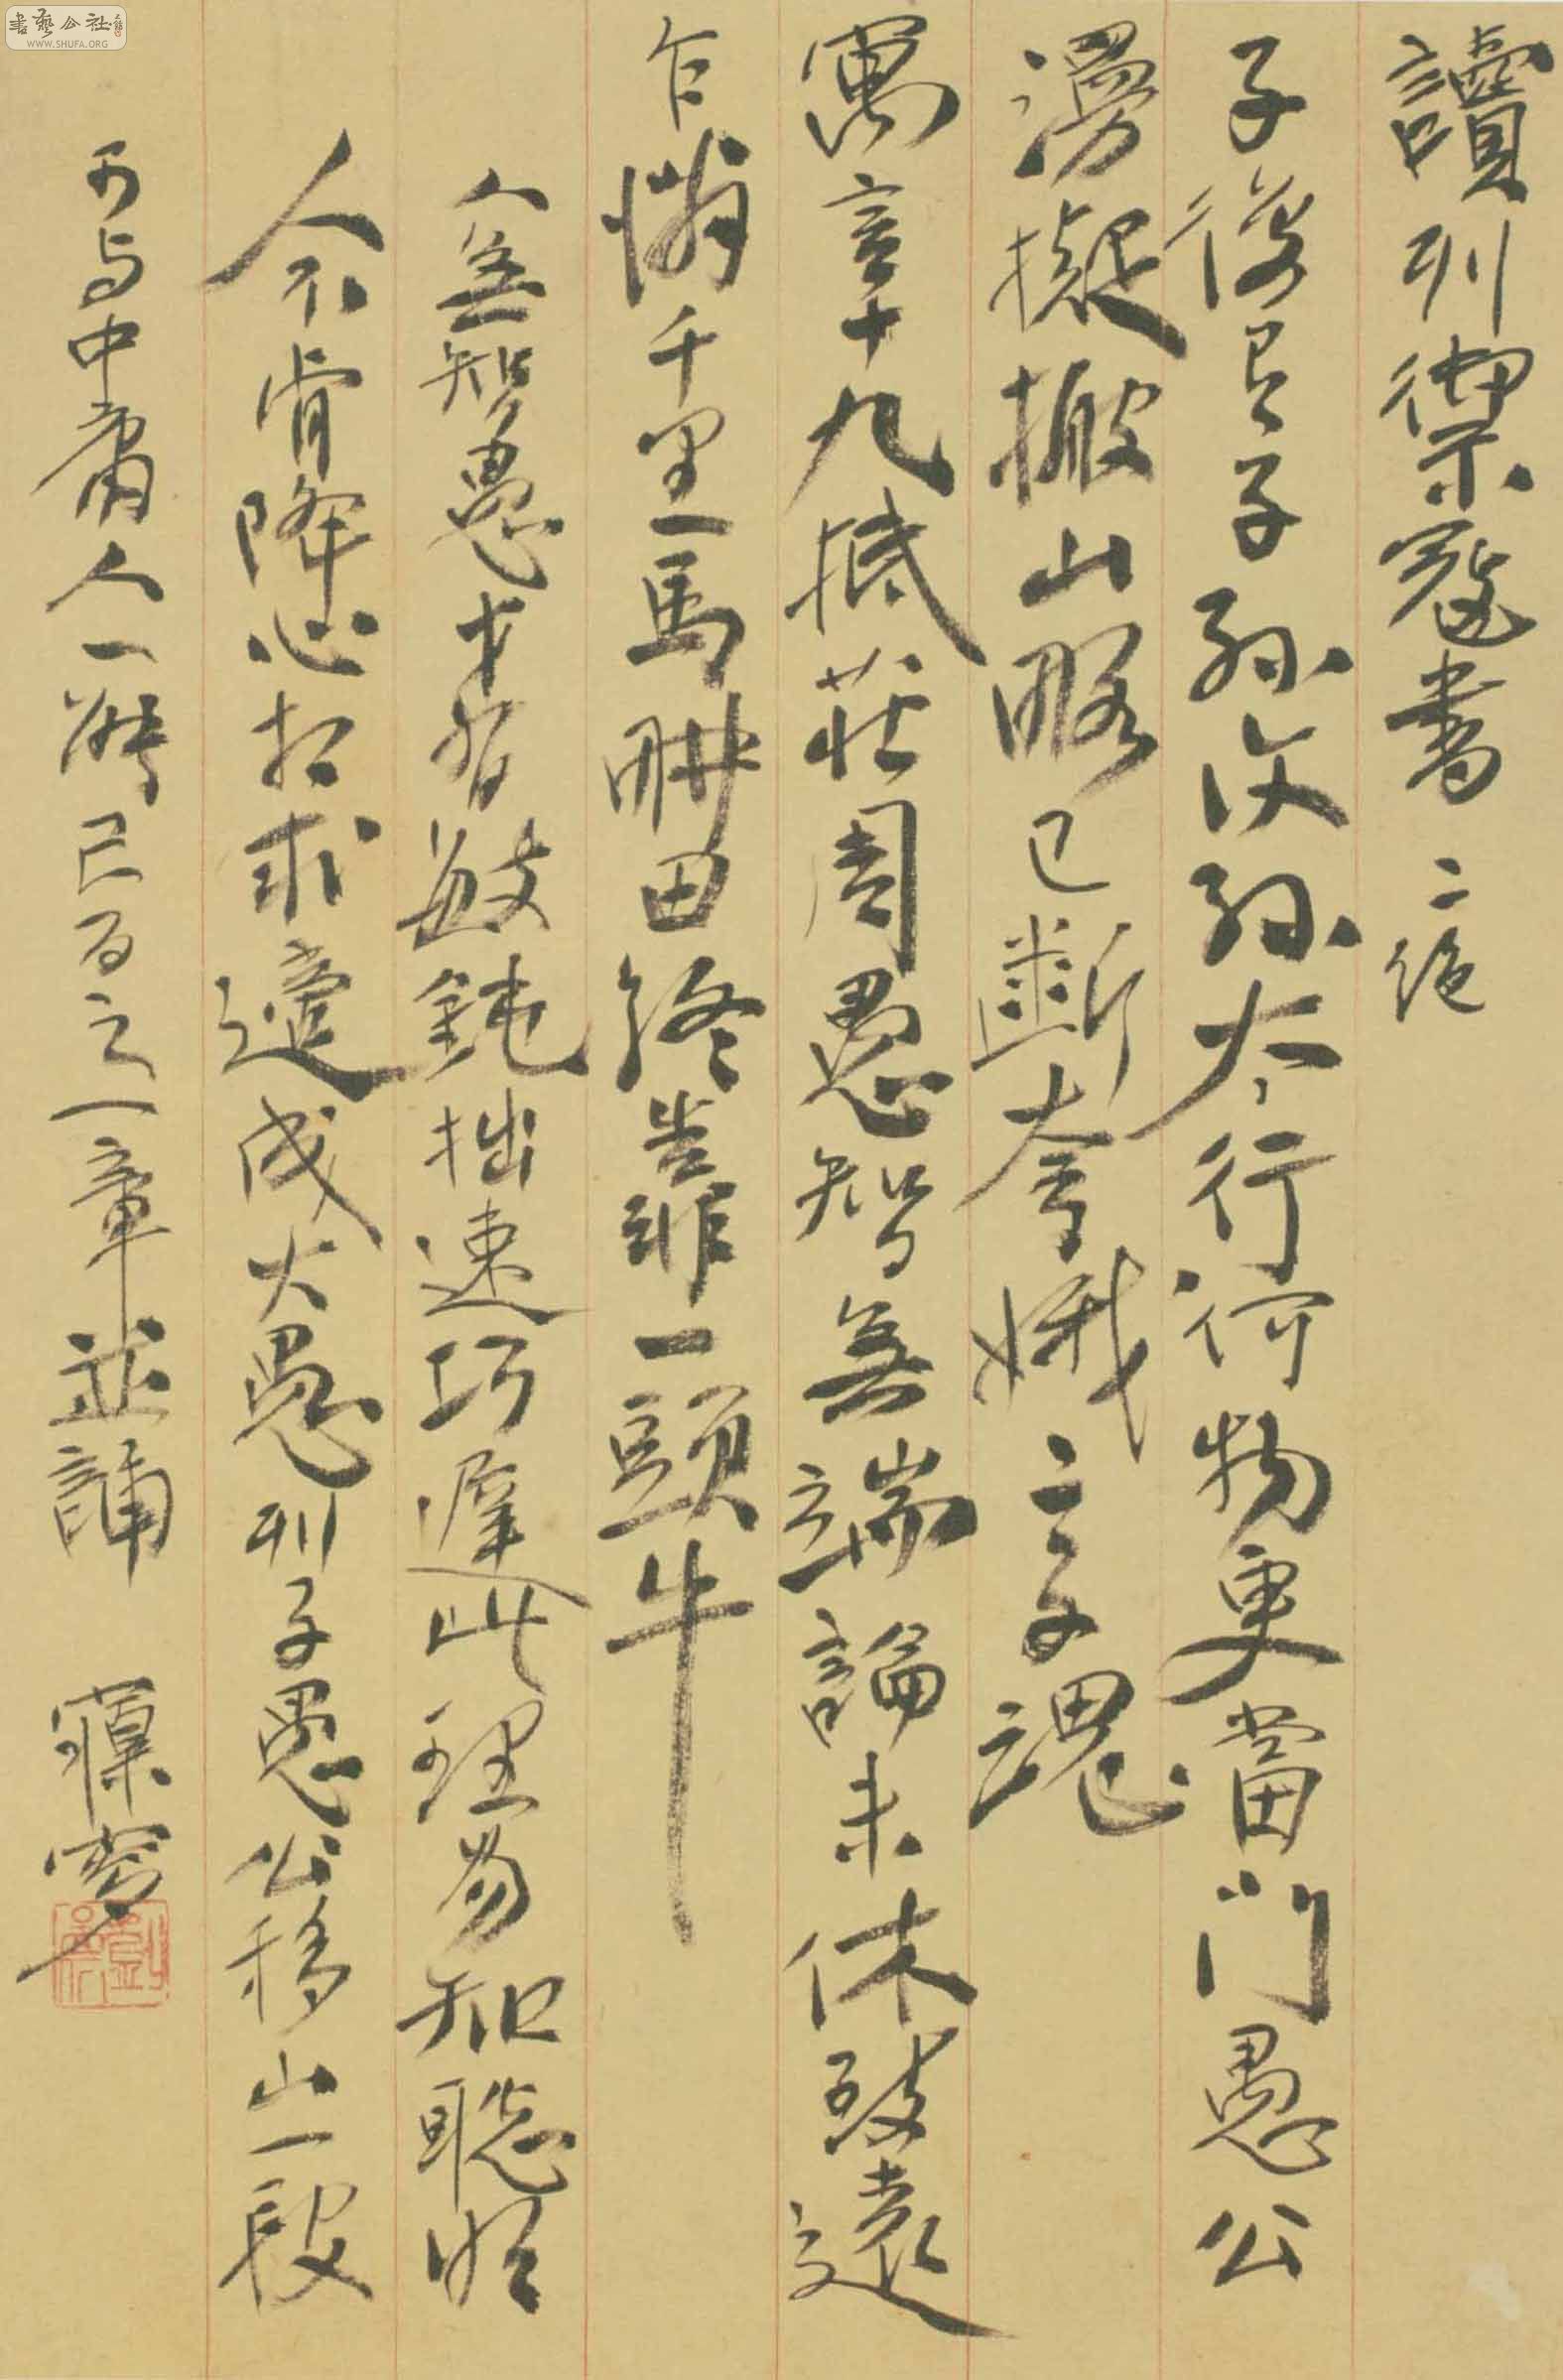 讀列禦寇書 二絕
子復有子孫復孫太行何物更當門愚公
漫擬搬山略已斷夸娥二子魂
寓言十九抵莊周愚智無端論未休致遠
乍憐千里馬耕田終靠一頭牛
人無智愚才有敏鈍拙速巧遲此理易知聰明
人不肯降心相求適成大愚列子愚公移山一段
可与中庸人一能己百之一章並誦
書藝公社
WWW.SHUFA.ORG